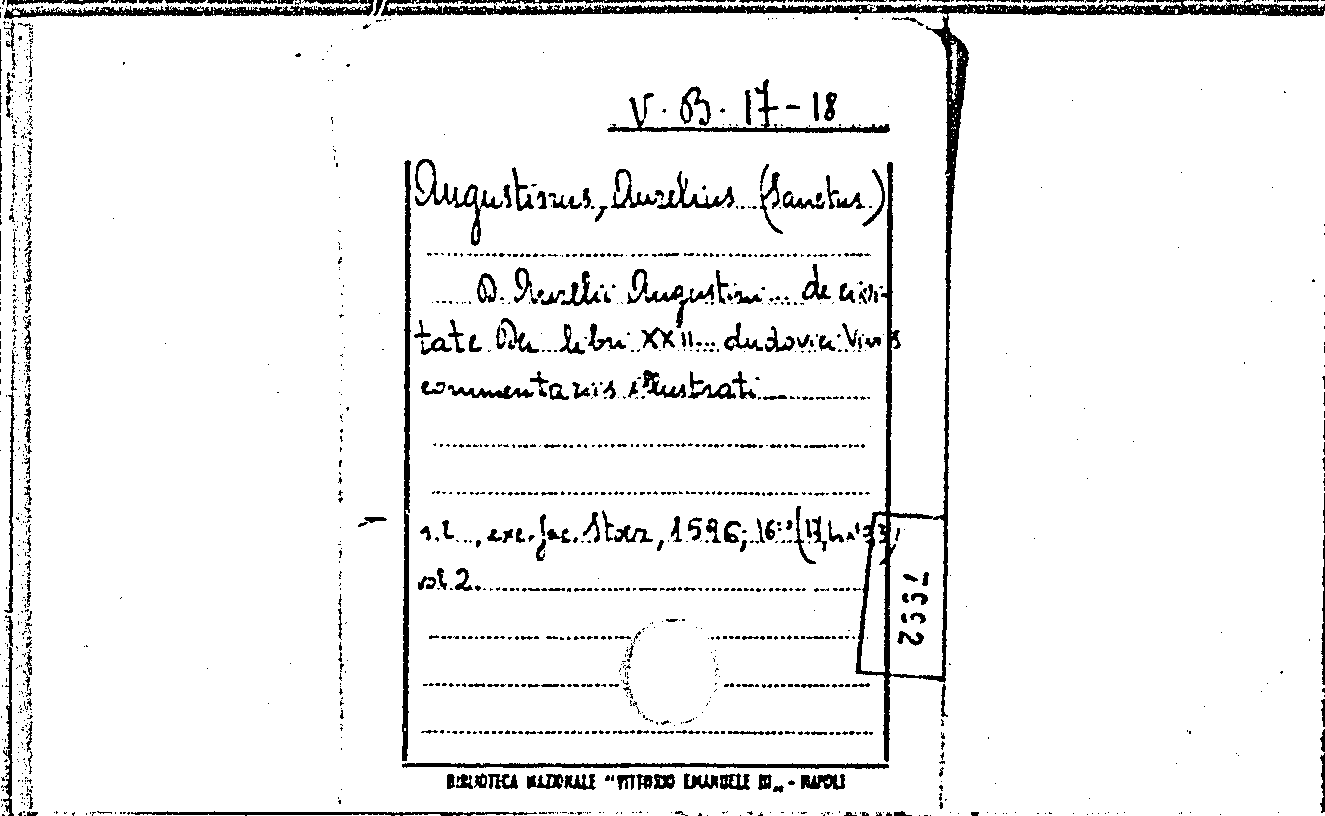 V. B. 17-18
Augustinus, Aurelius (Sanctus)
D. Aurelii Augustini... de civi-
tate Dei libri XXII... Ludovici Vivis
commentariis illustrati
s.l., exc. Jac. Stoer, 1596, 16º
vol 2.
7552
BIBLIOTECA NAZIONALE "VITTORIO EMANUELE III„ - NAPOLI